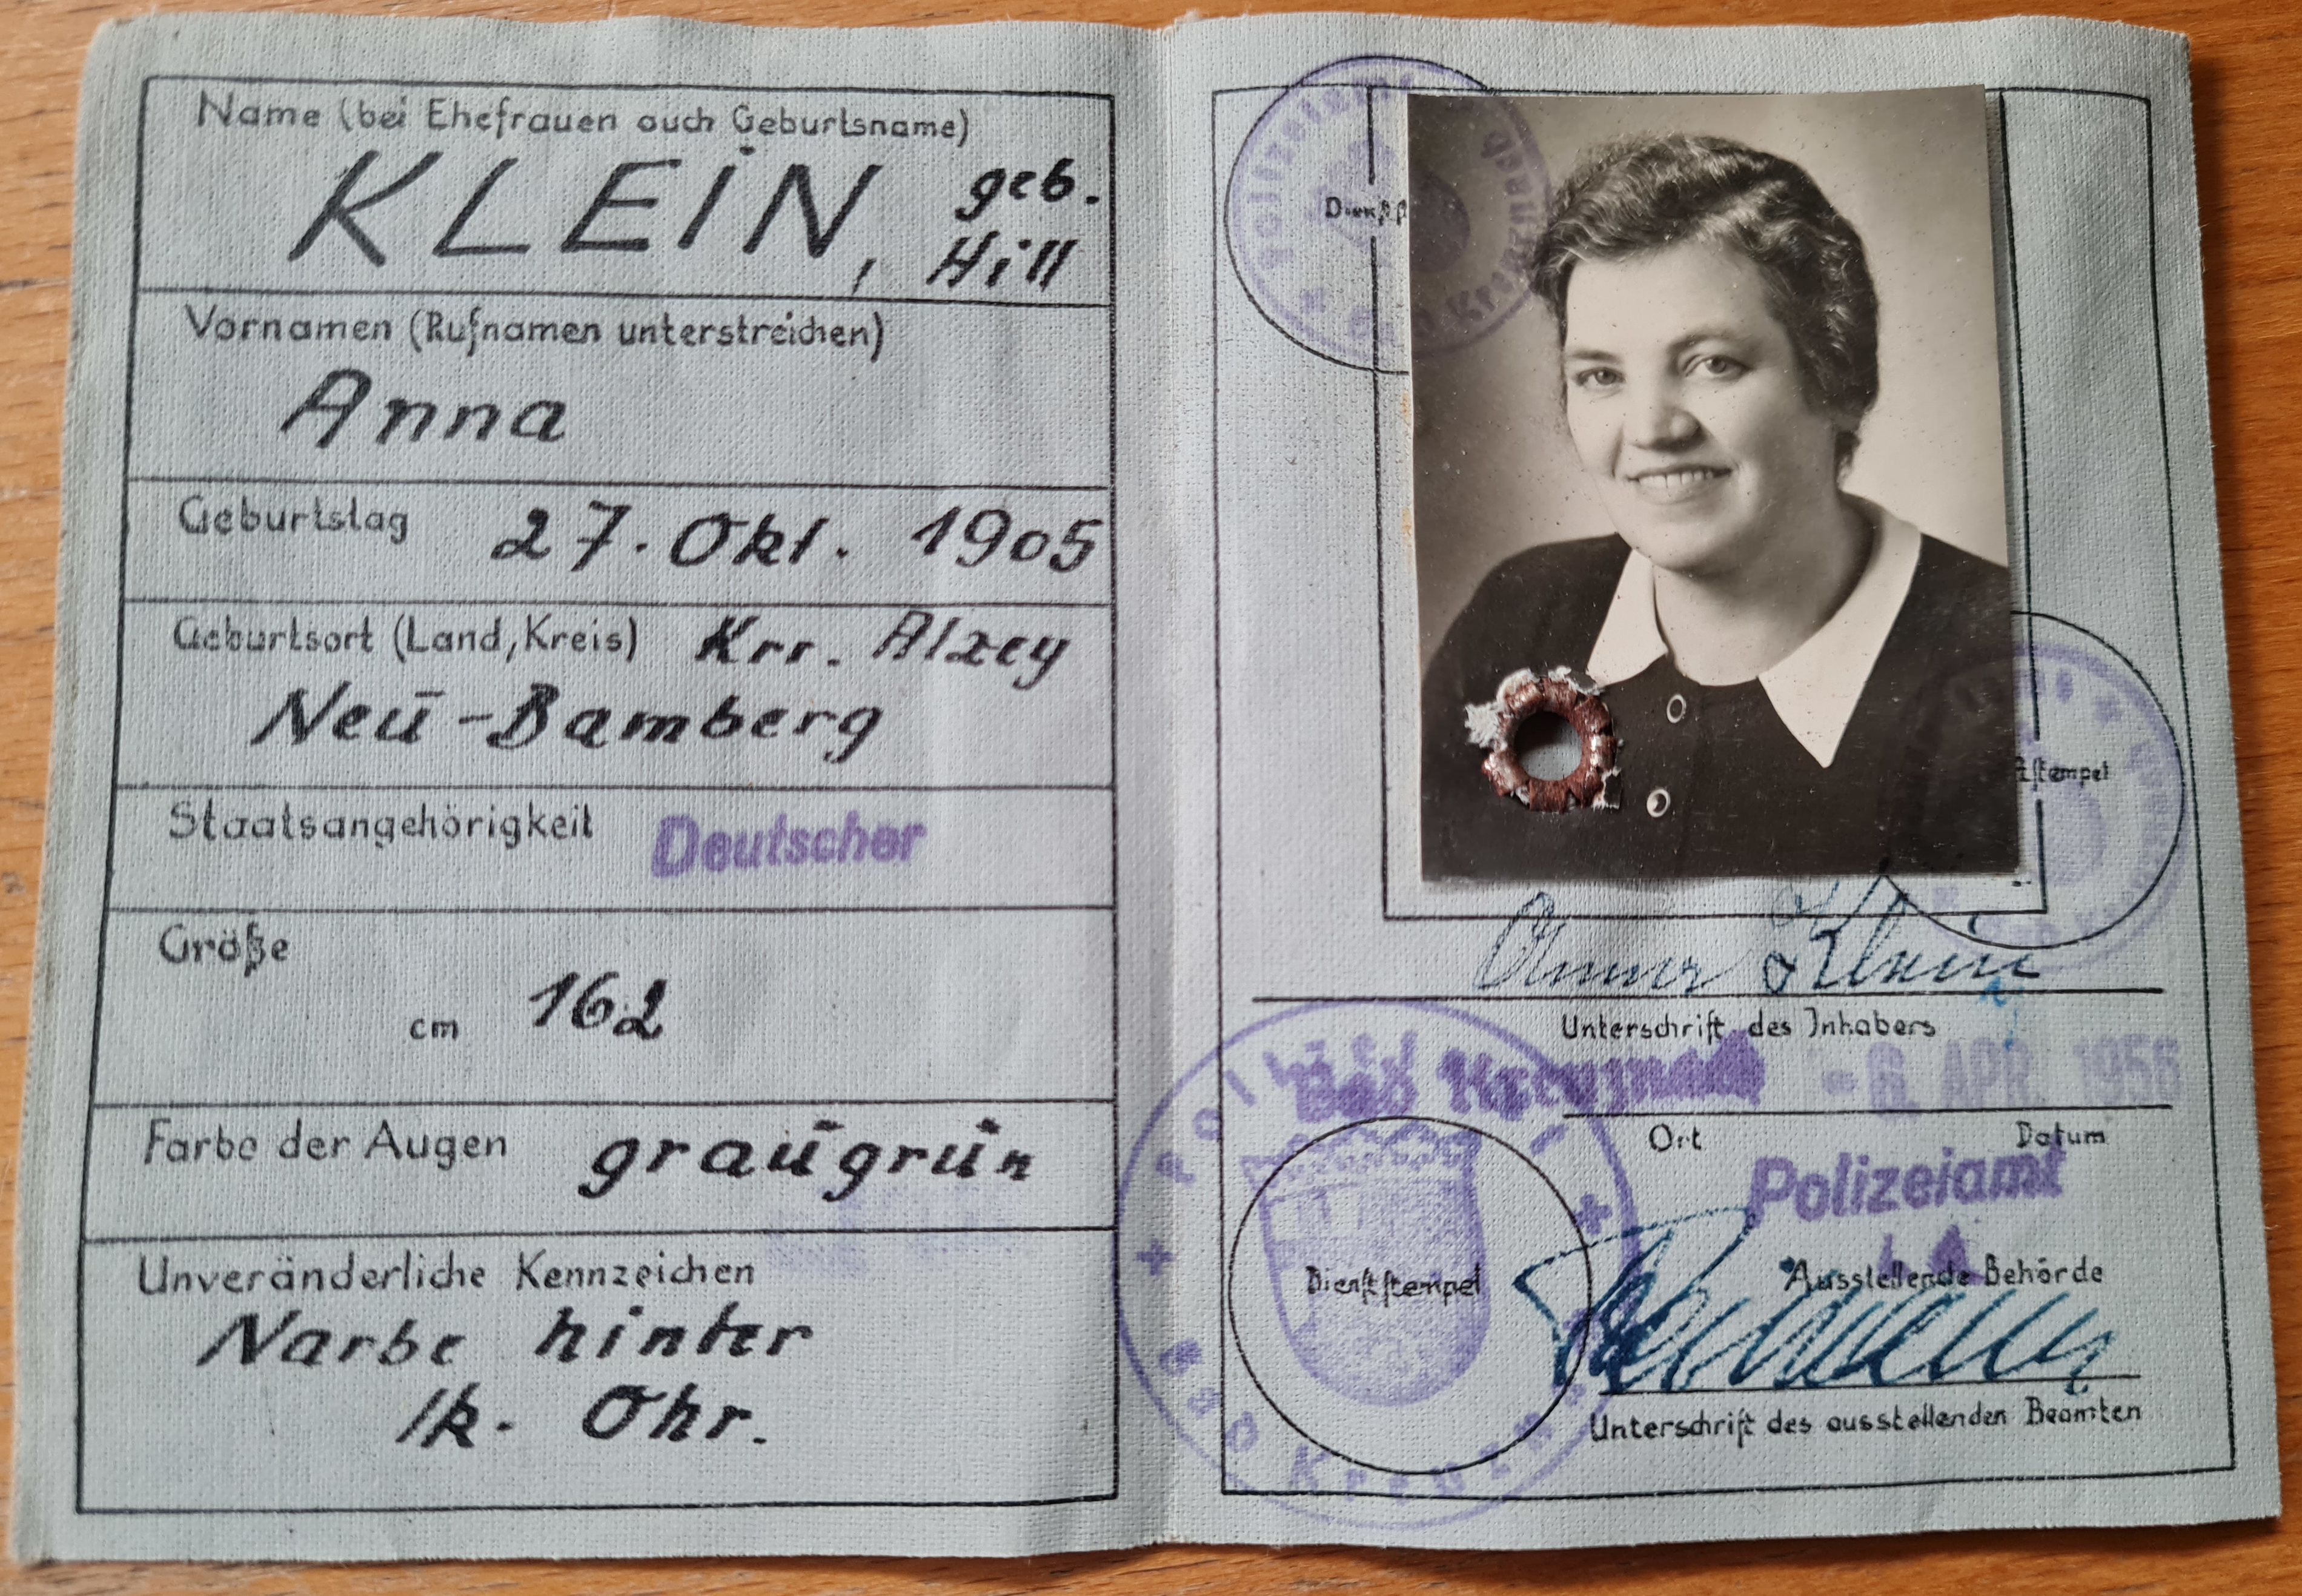 Name (bei Ehefrauen auch Geburtsname)
KLEIN, geb.
Hill
Vornamen (Rufnamen unterstreichen)
Anna
Geburtstag 27. Okt. 1905
Geburtsort (Land, Kreis) Krr. Alzey
Neu-Bamberg
Staatsangehörigkeit Deutscher
Größe
cm 162
Farbe der Augen graugrün
Unveränderliche Kennzeichen
Narbe hinter
lk. Ohr.
Polizeiamt
Bad Kreuznach
Dienſtſ
ſtempel
Anna Klein
Unterschrift des Inhabers
Bad Kreuznach - 6. APR. 1956
Ort Datum
Polizeiamt
Ausstellende Behörde
I.A.
Dienſtſtempel
Polizeiamt
Bad Kreuznach
Unterschrift des ausstellenden Beamten